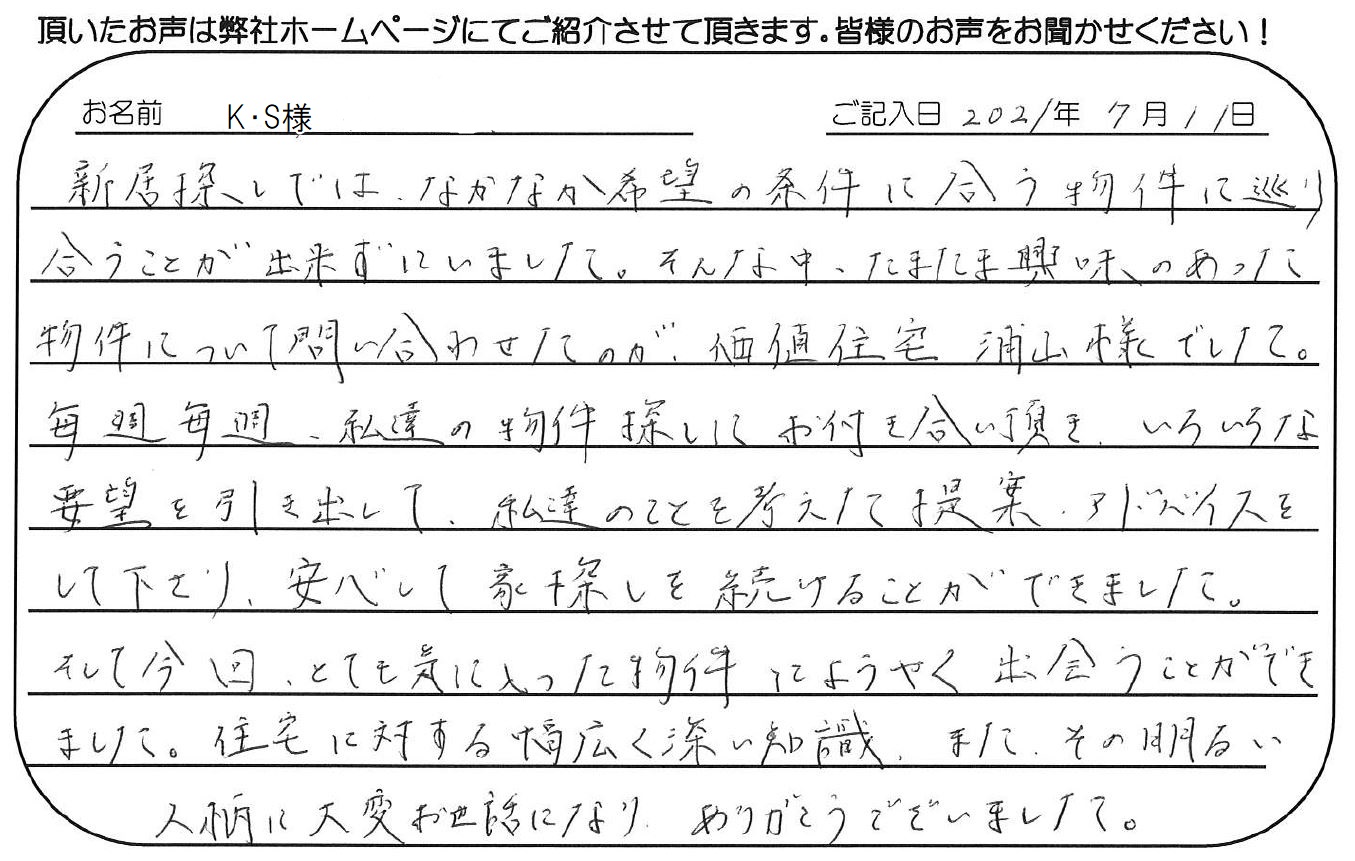 頂いたお声は弊社ホームページにてご紹介させて頂きます。皆様のお声をお聞かせください！
お名前 K・S様 ご記入日 2021年 7月 11日
新居探しでは、なかなか希望の条件に合う物件に巡り
合うことが出来ずにいました。そんな中、たまたま興味のあった
物件について問い合わせたのが、価値住宅 浦山様でした。
毎週毎週、私達の物件探しにお付き合い頂き、いろいろな
要望を引き出して、私達のことを考えた提案・アドバイスを
して下さり、安心して家探しを続けることができました。
そして今回、とても気に入った物件にようやく出会うことができ
ました。住宅に対する幅広く深い知識、また、その明るい
人柄に大変お世話になり、ありがとうございました。